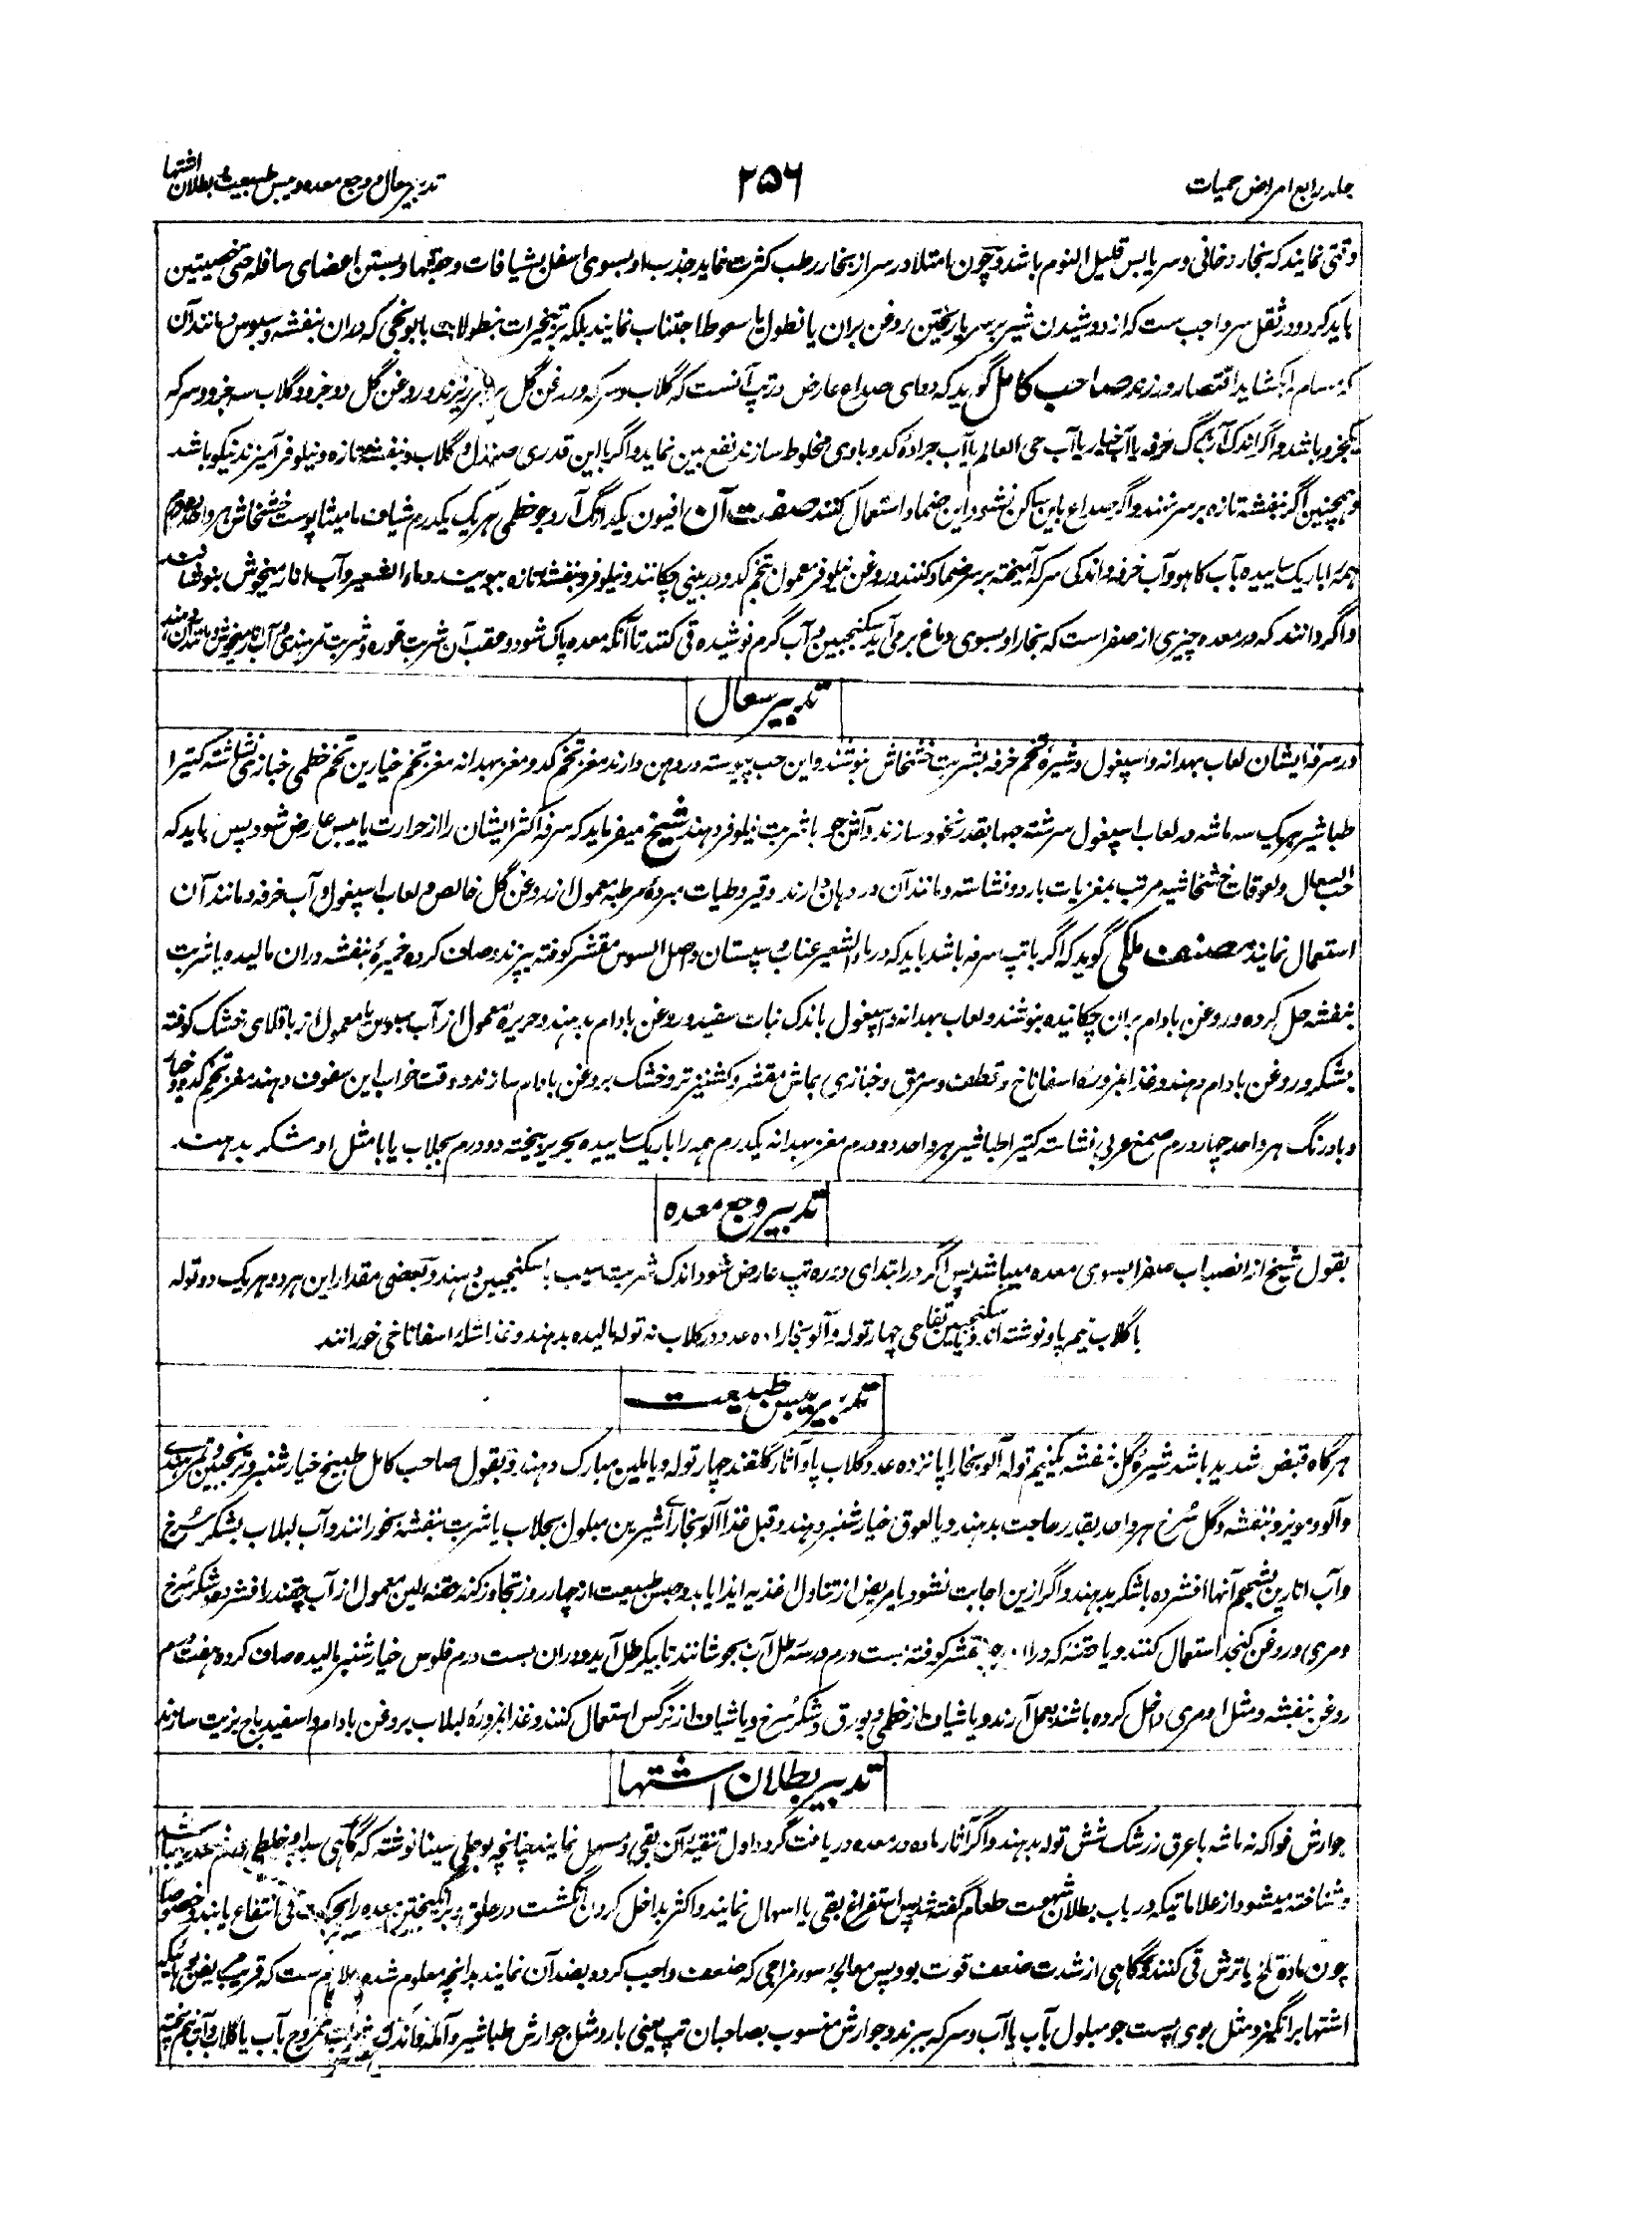 جلد رابع امراض حمیات
۲۵۶
تدبیر سعال و وجع معده و یبس طبیعت و بطلان اشتها
وقتی نمایند که بخار دخانی و سر یابس قلیل النوم باشد و چون امتلا در سر از بخار رطب کثرت نماید جذب او بسوی اسفل بشیافات و حقنها و بستن اعضای سافله حتی خصیتین
باید کرد و در ثقل سر واجب ست که از دوشیدن شیر بر سر یا ریختن روغن بران یا نطول یا سعوط اجتناب نمایند بلکه بر تبخیرات بنطولات بابونجی که دران بنفشه و سبوس و مانند آن
که مسام را بکشاید اقتصار ورزند صاحب کامل گوید که دوای صداع عارض در تپ آنست که گلاب و سرکه و روغن گل بر سر ریزند و روغن گل دو جزو و گلاب سه جزو و سرکه
یکجزو باشد و اگر اندک آب برگ خرفه یا آب خیار یا آب حی العالم یا آب جراده کدو باوی مخلوط سازند نفع بین نماید و اگر با این قدری صندل و گلاب و بنفشه تازه و نیلوفر آمیزند نیکو باشد
و همچنین اگر بنفشه تازه بر سر نهند و اگر صداع باین ساکن نشود این ضماد استعمال کنند صفت آن افیون یکدانگ آرد جو خطمی هر یک یکدرم شیاف مامیثا پوست خشخاش هر واحد
همه را باریک ساییده بآب کاهو و آب خرفه و اندکی سرکه آمیخته بر سر ضماد کنند و روغن نیلوفر معمول بتخم کدو در بینی چکانند و نیلوفر و بنفشه تازه ببویند و ماء الشعیر و آب انار میخوش بنوشانند
و اگر دانند که در معده چیزی از صفرا ست که بخار او بسوی دماغ بر می آید سکنجبین و آب گرم نوشیده قی کنند تا آنکه معده پاک شود و عقب آن شربت غوره و شربت تمر هندی و آب انار میخوش و مانند آن دهند
تدبیر سعال
در سرفه ایشان لعاب بهدانه و اسپغول و شیره تخم خرفه بشربت خشخاش بنوشند و این حب پیوسته در دهن دارند مغز تخم کدو مغز بهدانه مغز تخم خیارین تخم خطمی خبازی نشاسته کتیرا
طباشیر هر یک سه ماشه در لعاب اسپغول سرشته حبها بقدر نخود سازند و آش جو با شربت نیلوفر دهند شیخ میفرماید که سرفه اکثر ایشان را از حرارت یا یبس عارض شود پس باید که
حب السعال و لعوقات خشخاشیه مرتب بمغزیات بارد و نشاسته و مانند آن در دهان دارند و قیروطیات مبرده مرطبه معمول از روغن گل خالص و لعاب اسپغول و آب خرفه و مانند آن
استعمال نمایند مصنف ملکی گوید که اگر با تپ سرفه باشد باید که در ماء الشعیر عناب و سپستان و اصل السوس مقشر کوفته بپزند و صاف کرده خمیره بنفشه دران مالیده یا شربت
بنفشه حل کرده و روغن بادام بران چکانیده بنوشند و لعاب بهدانه و اسپغول باندک نبات سفید و روغن بادام بدهند و حریره معمول از آب سبوس یا معمول از باقلای خشک کوفته
بشکر و روغن بادام دهند و غذا مزوره اسفاناخ و قطف و سرمق و خبازی بماش مقشر و کشنیز تر و خشک بروغن بادام سازند و وقت خواب این سفوف دهند مغز تخم کدو و خیار
و بادرنگ هر واحد چهار درم صمغ عربی نشاسته کتیرا طباشیر هر واحد دو درم مغز بهدانه یکدرم همه را باریک ساییده بحریر بیخته دو درم بجلاب یا با مثل او شکر بدهند
تدبیر وجع معده
بقول شیخ از انصباب صفرا بسوی معده میباشد پس اگر در ابتدای دوره تپ عارض شود اندک شربت سیب با سکنجبین دهند و بعضی مقدار این هر دو هر یک دو توله
با گلاب نیم پاو نوشته اند و یا سکنجبین تفاحی چهار توله و آلو بخارا ده عدد در گلاب نه توله مالیده بدهند و غذا شله اسفاناخی خورانند
تدبیر یبس طبیعت
هر گاه قبض شدید باشد شیره گل بنفشه یکنیم توله آلو بخارا پانزده عدد گلاب پاو آثار گلقند چهار توله و یا ملین مبارک دهند و بقول صاحب کامل طبیخ خیارشنبر و ترنجبین و تمر هندی
و آلو و مویز و بنفشه و گل سرخ هر واحد بقدر حاجت بدهند و یا لعوق خیارشنبر دهند و قبل غذا آلو بخارای شیرین مبلول بجلاب یا شربت بنفشه بخورانند و آب لبلاب بشکر سرخ
و آب انارین بشحم آنها افشرده با شکر بدهند و اگر ازین اجابت نشود یا مریض از تناول اغذیه ایذا یابد و حبس طبیعت از چهار روز تجاوز کند حقنه لین معمول از آب چقندر افشرده و شکر سرخ
و مری و روغن کنجد استعمال کنند و یا حقنه که دران مقشر کوفته بست درم در سه رطل آب بجوشانند تا بیکرطل آید و دران بست درم فلوس خیارشنبر مالیده صاف کرده هفت درم
روغن بنفشه و مثل او مری داخل کرده باشند بعمل آرند و یا شیاف از خطمی و بورق و شکر سرخ و یا شیاف از نرگس استعمال کنند و غذا مزوره لبلاب بروغن بادام و اسفیدباج بزیت سازند
تدبیر بطلان اشتها
جوارش فواکه نه ماشه با عرق زرشک شش توله بدهند و اگر آثار ماده در معده دریافت گردد اول تنقیه آن بقی و مسهل نمایند چنانچه بوعلی سینا نوشته که گاهی سبب او خلطی در فم معده میباشد
و شناخته میشود از علاماتیکه در باب بطلان شهوت طعام گفته شد پس استفراغ بقی یا اسهال نمایند و اکثر بداخل کردن انگشت در حلق و بر انگیختن معده را بحرکت قی انتفاع یابند و خصوصا
چون ماده تلخ یا ترش قی کنند و گاهی از شدت ضعف قوت بود پس معالجه سوء مزاجی که ضعف واجب کرده بضد آن نمایند بدانچه معلوم شده و لازم ست که قریب مریض بویهائیکه
اشتها بر انگیزد مثل بوی پست جو مبلول بآب یا آب و سرکه ببرند و جوارش منسوب بصاحبان تپ یعنی بارد مثل جوارش طباشیر و آمله و اندک شراب ممزوج بآب یا گلاب و آب